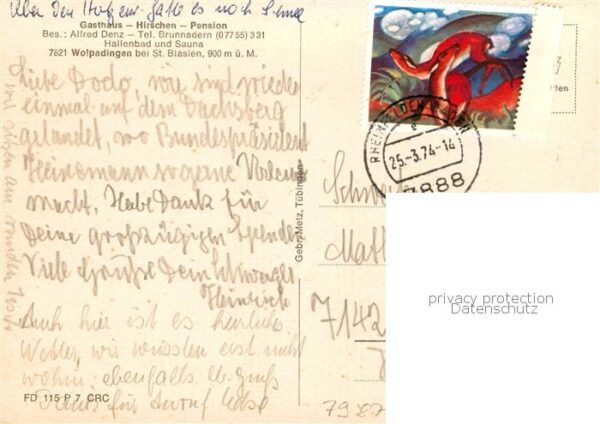 Über den Hotzenwald gabe es noch Schnee
Gasthaus - Hirschen - Pension
Bes.: Alfred Denz — Tel. Brunnadern (07755) 331
Hallenbad und Sauna
7821 Wolpadingen bei St. Blasien, 900 m ü. M.
Liebe Dodo, wir sind wieder
einmal auf dem Dachsberg
gelandet, wo Bundespräsident
Heinemann so gerne
macht. Habe Dank für
Deine großzügigen Spenden
Viele Grüße Dein Schwager
Heinrich
Auch hier ist es herrliches
Wetter, wir wussten erst nicht
wohin; ebenfalls lb. Gruß
Dank für
wir sitzen am runden
FD 115 P 7 CRC
Gebr. Metz, Tübingen
RHEINFELDEN (BADEN)
e
25.-3.74-14
7888
Schwe
Math
7142
7987
privacy protection
Datenschutz